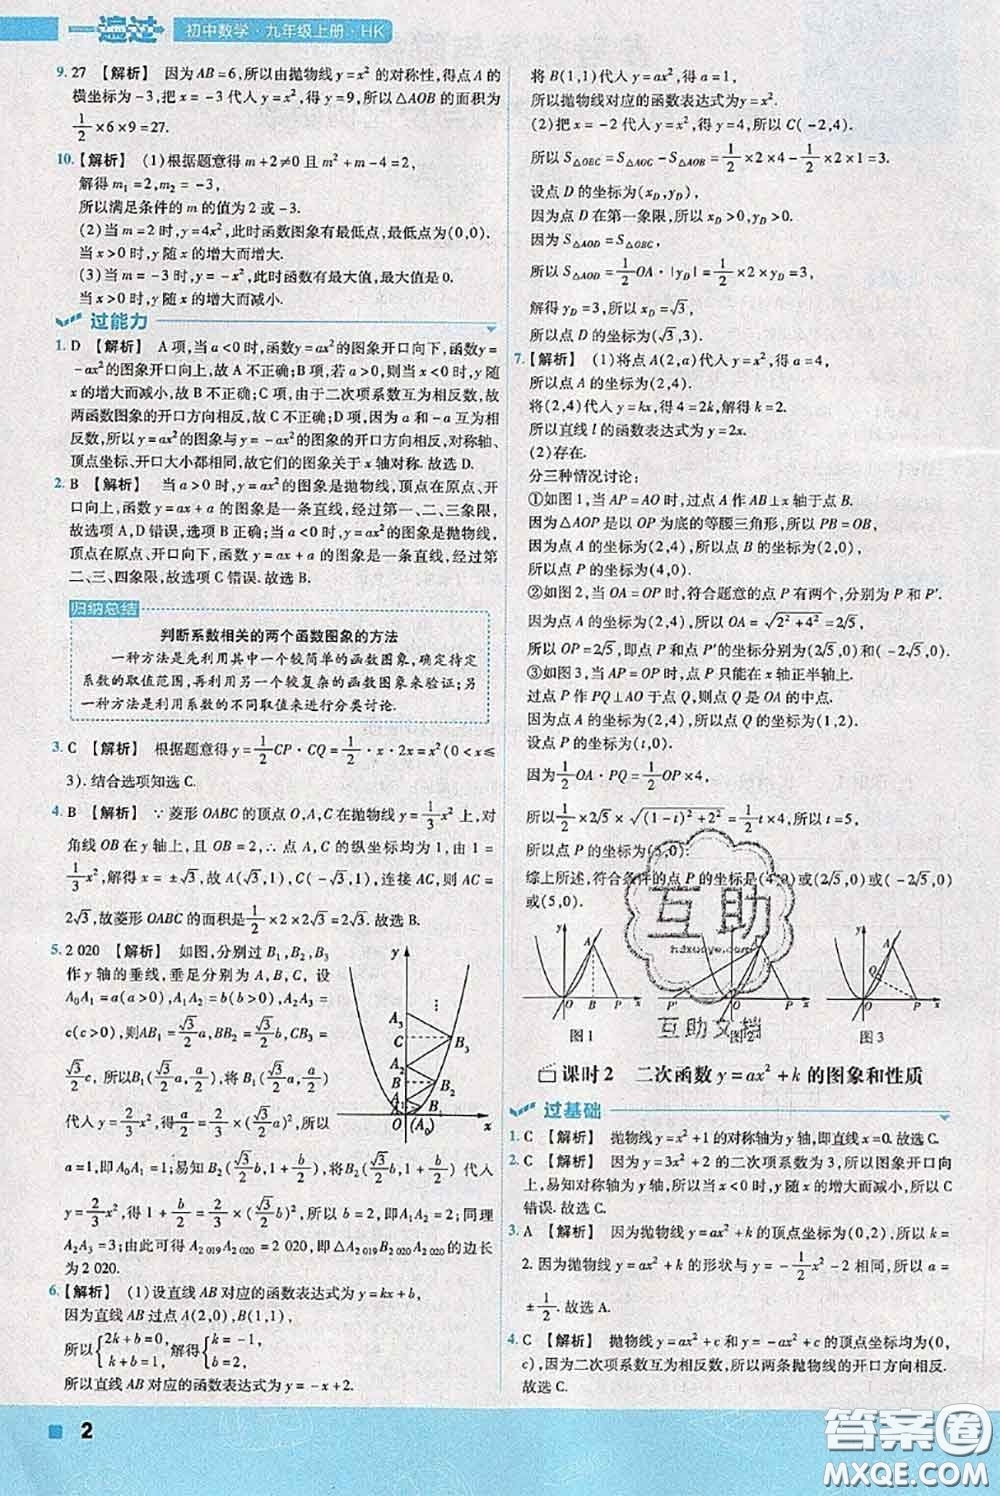 一遍过 初中数学·九年级上册·HK
9. 27 【解析】 因为AB=6,所以由抛物线y=x²的对称性,得点A的
横坐标为-3,把x=-3代入y=x²,得y=9,所以△AOB的面积为
1/2×6×9=27.
10. 【解析】 (1)根据题意得m+2≠0且m²+m-4=2,
解得m₁=2,m₂=-3,
所以满足条件的m的值为2或-3.
(2)当m=2时,y=4x²,此时函数图象有最低点,最低点为(0,0).
当x>0时,y随x的增大而增大.
(3)当m=-3时,y=-x²,此时函数有最大值,最大值是0.
当x>0时,y随x的增大而减小.
过能力
1. D 【解析】 A项,当a<0时,函数y=ax²的图象开口向下,函数y=
-ax²的图象开口向上,故A不正确;B项,若a>0,则当x<0时,y随
x的增大而减小,故B不正确;C项,由于二次项系数互为相反数,故
两函数图象的开口方向相反,故C不正确;D项,因为a和-a互为相
反数,所以y=ax²的图象与y=-ax²的图象的开口方向相反,对称轴、
顶点坐标、开口大小都相同,故它们的图象关于x轴对称.故选D.
2. B 【解析】 当a>0时,函数y=ax²的图象是抛物线,顶点在原点、开
口向上,函数y=ax+a的图象是一条直线,经过第一、二、三象限,
故选项A,D错误,选项B正确;当a<0时,函数y=ax²的图象是抛物线,
顶点在原点、开口向下,函数y=ax+a的图象是一条直线,经过第
二、三、四象限,故选项C错误.故选B.
归纳总结
判断系数相关的两个函数图象的方法
一种方法是先利用其中一个较简单的函数图象,确定待定
系数的取值范围,再利用另一个较复杂的函数图象来验证;另
一种方法是利用系数的不同取值来进行分类讨论.
3. C 【解析】 根据题意得y=1/2CP·CQ=1/2·x·2x=x²(0<x≤
3).结合选项知选C.
4. B 【解析】 ∵菱形OABC的顶点O,A,C在抛物线y=1/3x²上,对
角线OB在y轴上,且OB=2,∴点A,C的纵坐标均为1,由1=
1/3x²,解得x=±√3,故A(√3,1),C(-√3,1),连接AC,则AC=
2√3,故菱形OABC的面积是1/2×2×2√3=2√3.故选B.
5. 2 020 【解析】 如图,分别过B₁,B₂,B₃
作y轴的垂线,垂足分别为A,B,C,设
A₀A₁=a(a>0),A₁A₂=b(b>0),A₂A₃=
c(c>0),则AB₁=√3/2a,BB₂=√3/2b,CB₃=
√3/2c,所以B₁(√3/2a,a/2),将(√3/2a,a/2)
代入y=2/3x²,得a/2=2/3×(√3/2a)²,所以
a=1,即A₀A₁=1;B₂(√3/2b,1+b/2),将(√3/2b,1+b/2)代入
y=2/3x²,得1+b/2=2/3×(√3/2b)²,所以b=2,即A₁A₂=2;同理
A₂A₃=3;由此可得A₂₀₁₉A₂₀₂₀=2 020,即△A₂₀₁₉B₂₀₂₀A₂₀₂₀的边长
为2 020.
6. 【解析】 (1)设直线AB对应的函数表达式为y=kx+b,
因为直线AB过点A(2,0),B(1,1),
所以{2k+b=0, k+b=1,解得{k=-1, b=2,
所以直线AB对应的函数表达式为y=-x+2.
将B(1,1)代入y=ax²,得a=1,
所以抛物线对应的函数表达式为y=x².
(2)把x=-2代入y=x²,得y=4,所以C(-2,4).
所以S△OBC=S△AOC-S△AOB=1/2×2×4-1/2×2×1=3.
设点D的坐标为(x_D,y_D),
因为点D在第一象限,所以x_D>0,y_D>0.
因为S△AOD=S△OBC,
所以S△AOD=1/2OA·|y_D|=1/2×2×y_D=3,
解得y_D=3,所以x_D=√3,
所以点D的坐标为(√3,3).
7. 【解析】 (1)将点A(2,a)代入y=x²,得a=4,
所以点A的坐标为(2,4).
将(2,4)代入y=kx,得4=2k,解得k=2.
所以直线l的函数表达式为y=2x.
(2)存在.
分三种情况讨论:
①如图1,当AP=AO时,过点A作AB⊥x轴于点B.
因为△AOP是以OP为底的等腰三角形,所以PB=OB,
因为点A的坐标为(2,4),所以OB=2,所以OP=4,
所以点P的坐标为(4,0).
②如图2,当OA=OP时,符合题意的点P有两个,分别为P和P′.
因为点A的坐标为(2,4),所以OA=√(2²+4²)=2√5,
所以OP=2√5,即点P和点P′的坐标分别为(2√5,0)和(-2√5,0).
③如图3,当AP=OP时,点P只能在x轴正半轴上.
过点P作PQ⊥AO于点Q,则点Q是OA的中点.
因为点A的坐标为(2,4),所以点Q的坐标为(1,2).
设点P的坐标为(t,0).
因为1/2OA·PQ=1/2OP×4,
所以1/2×2√5×√((1-t)²+2²)=1/2t×4,所以t=5,
所以点P的坐标为(5,0).
综上所述,符合条件的点P的坐标是(4,0)或(2√5,0)或(-2√5,0)
或(5,0).
图1 图2 图3
互助
hdzuoye.com
互助文档
课时2 二次函数y=ax²+k的图象和性质
过基础
1. C 【解析】 抛物线y=x²+1的对称轴为y轴,即直线x=0.故选C.
2. C 【解析】 因为y=3x²+2的二次项系数为3,所以图象开口向
上,易知对称轴为y轴,所以当x<0时,y随x的增大而减小,所以C
错误.故选C.
3. A 【解析】 因为抛物线y=ax²+k的顶点坐标为(0,2),所以k=
2.因为抛物线y=ax²+k的形状与y=-1/2x²-2相同,所以a=
±1/2.故选A.
4. C 【解析】 抛物线y=ax²+c和y=-ax²+c的顶点坐标均为(0,
c),因为二次项系数互为相反数,所以两条抛物线的开口方向相反.
故选C.
2
答案圈
MXQE.COM